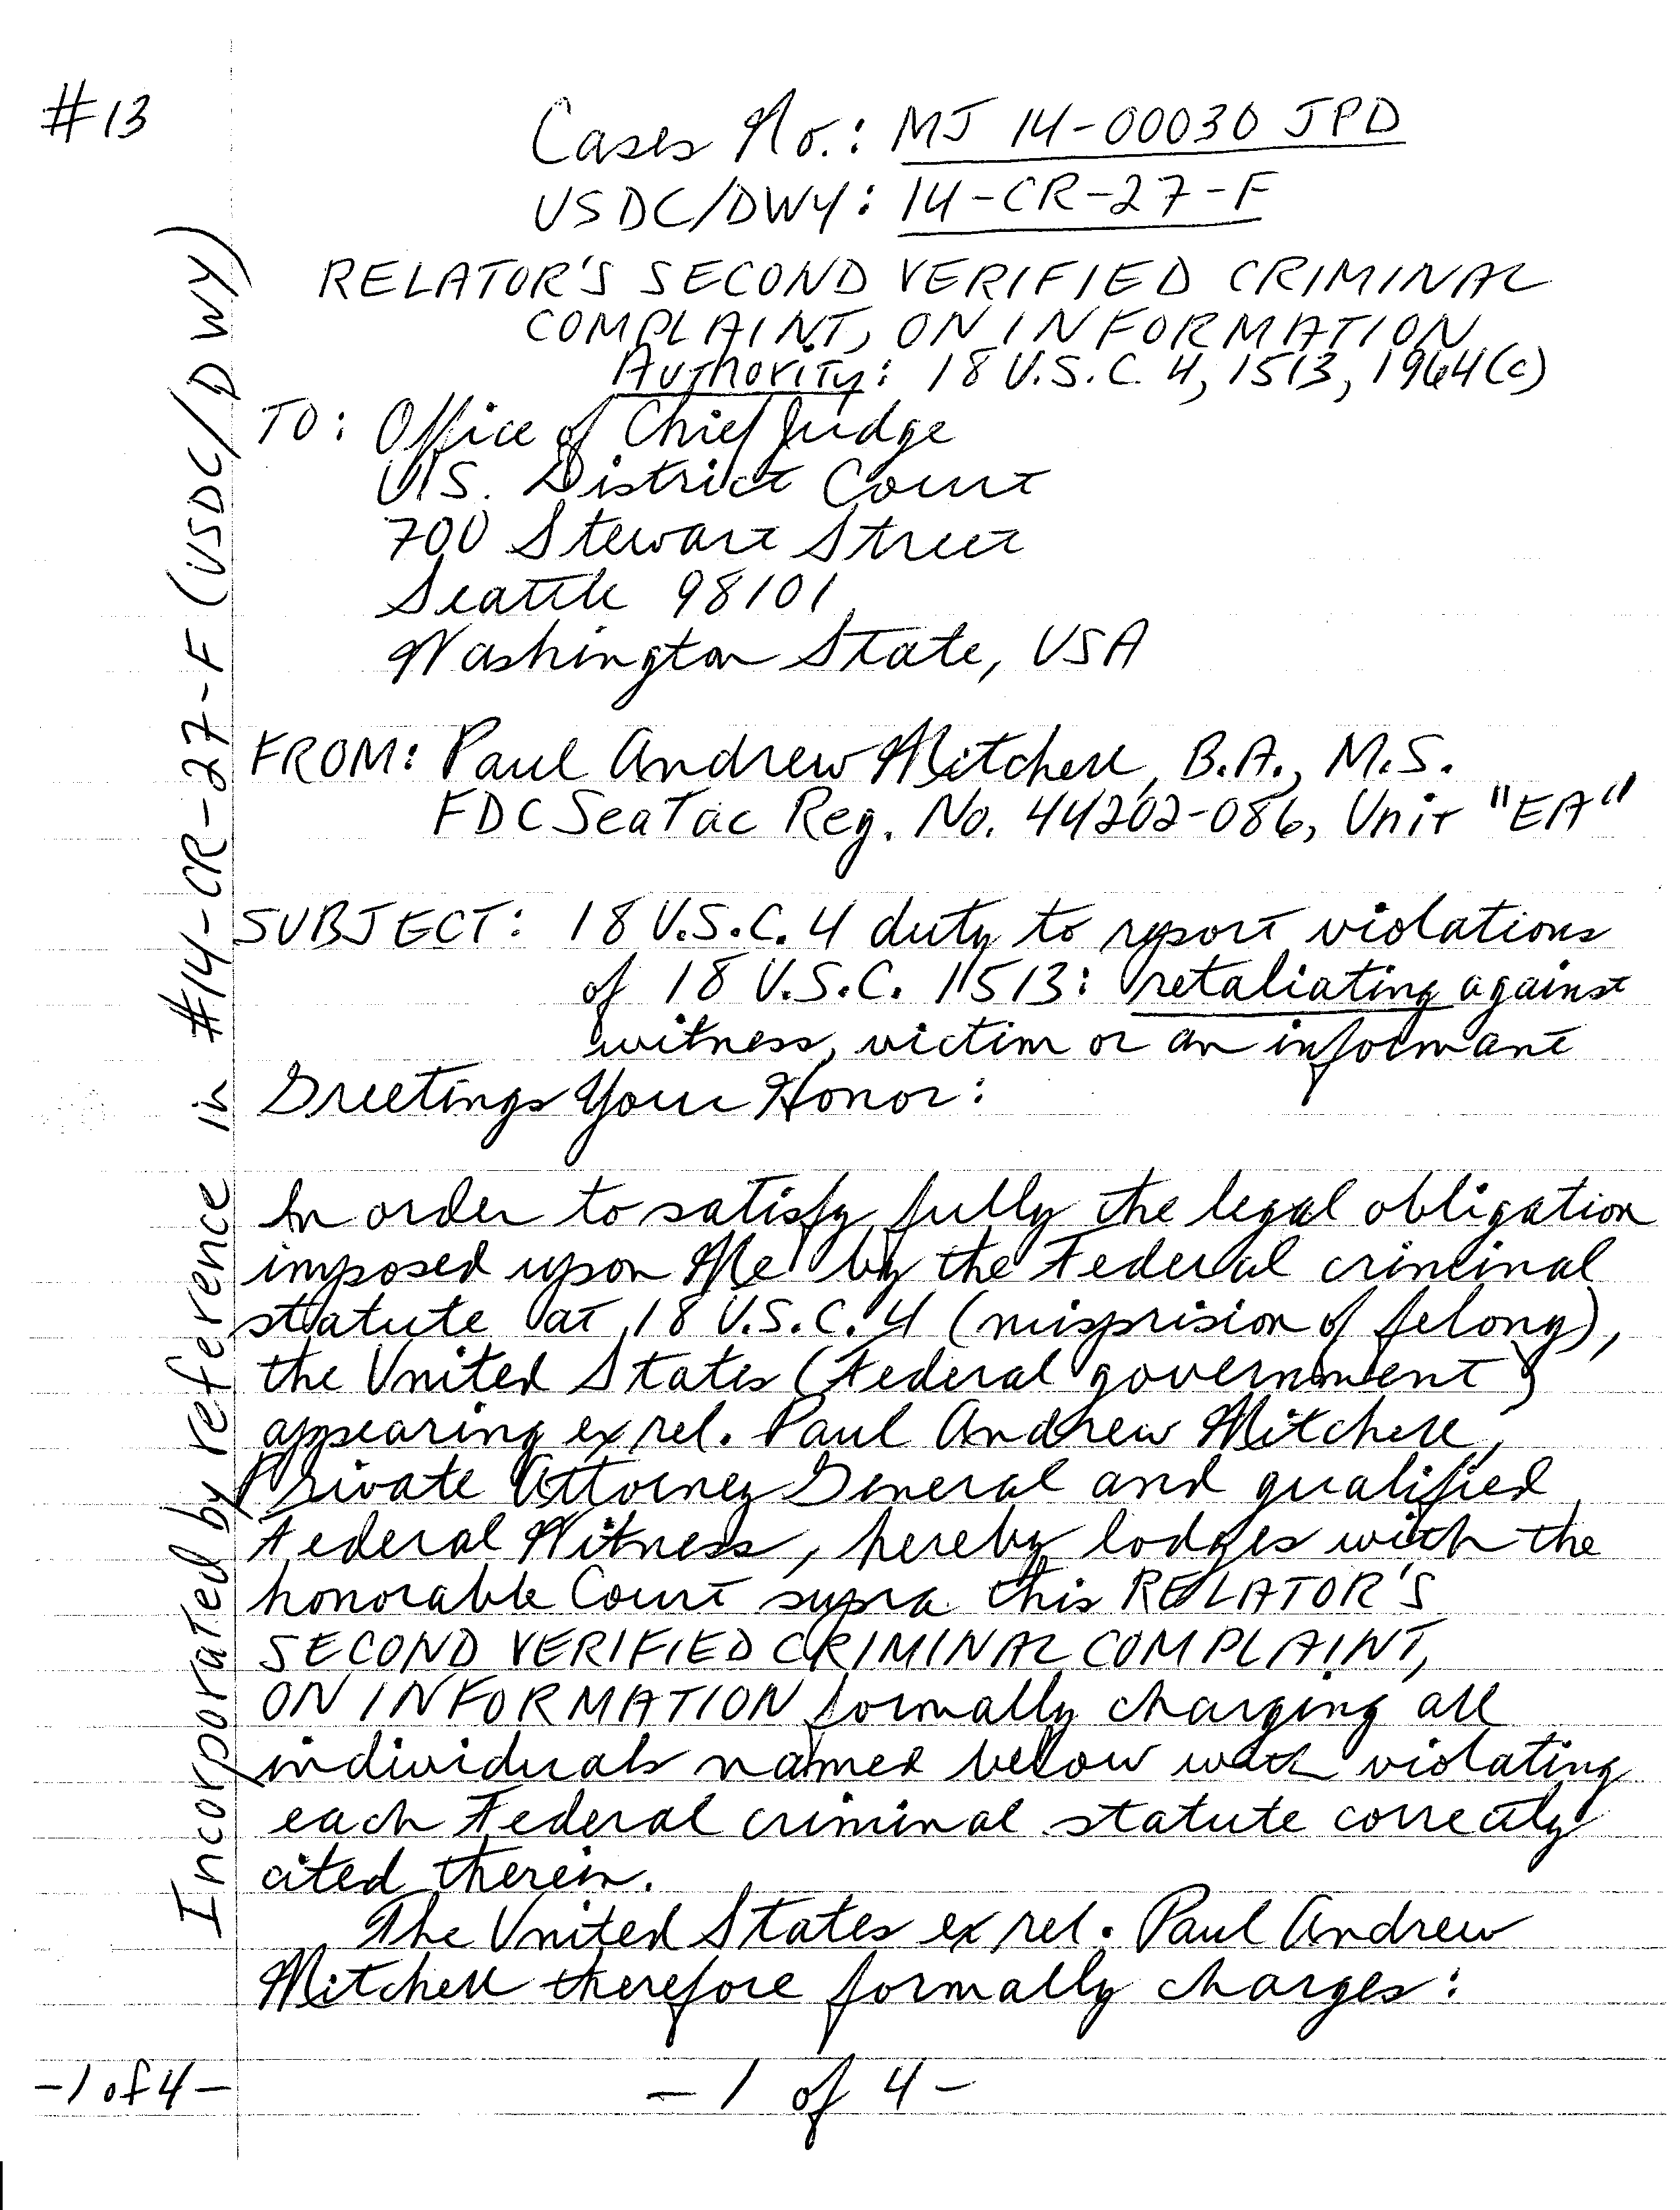 #13
Cases No.: MJ 14-00030 JPD
USDC/DWY: 14-CR-27-F
RELATOR'S SECOND VERIFIED CRIMINAL
COMPLAINT, ON INFORMATION
Authority: 18 U.S.C. 4, 1513, 1964(c)
TO: Office of Chief Judge
U.S. District Court
700 Stewart Street
Seattle 98101
Washington State, USA
FROM: Paul Andrew Mitchell, B.A., M.S.
FDC SeaTac Reg. No. 44202-086, Unit "EA"
SUBJECT: 18 U.S.C. 4 duty to report violations
of 18 U.S.C. 1513: retaliating against
witness, victim or an informant
Greetings Your Honor:
In order to satisfy fully the legal obligation
imposed upon Me by the Federal criminal
statute at 18 U.S.C. 4 (misprision of felony),
the United States (Federal government)
appearing ex rel. Paul Andrew Mitchell,
Private Attorney General and qualified
Federal Witness, hereby lodges with the
honorable Court supra this RELATOR'S
SECOND VERIFIED CRIMINAL COMPLAINT,
ON INFORMATION formally charging all
individuals named below with violating
each Federal criminal statute correctly
cited therein.
The United States ex rel. Paul Andrew
Mitchell therefore formally charges:
-1 of 4-
- 1 of 4 -
Incorporated by reference in #14-CR-27-F (USDC/DWY)